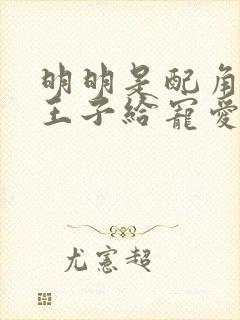 明明是配角
王子給寵愛
尤憲超